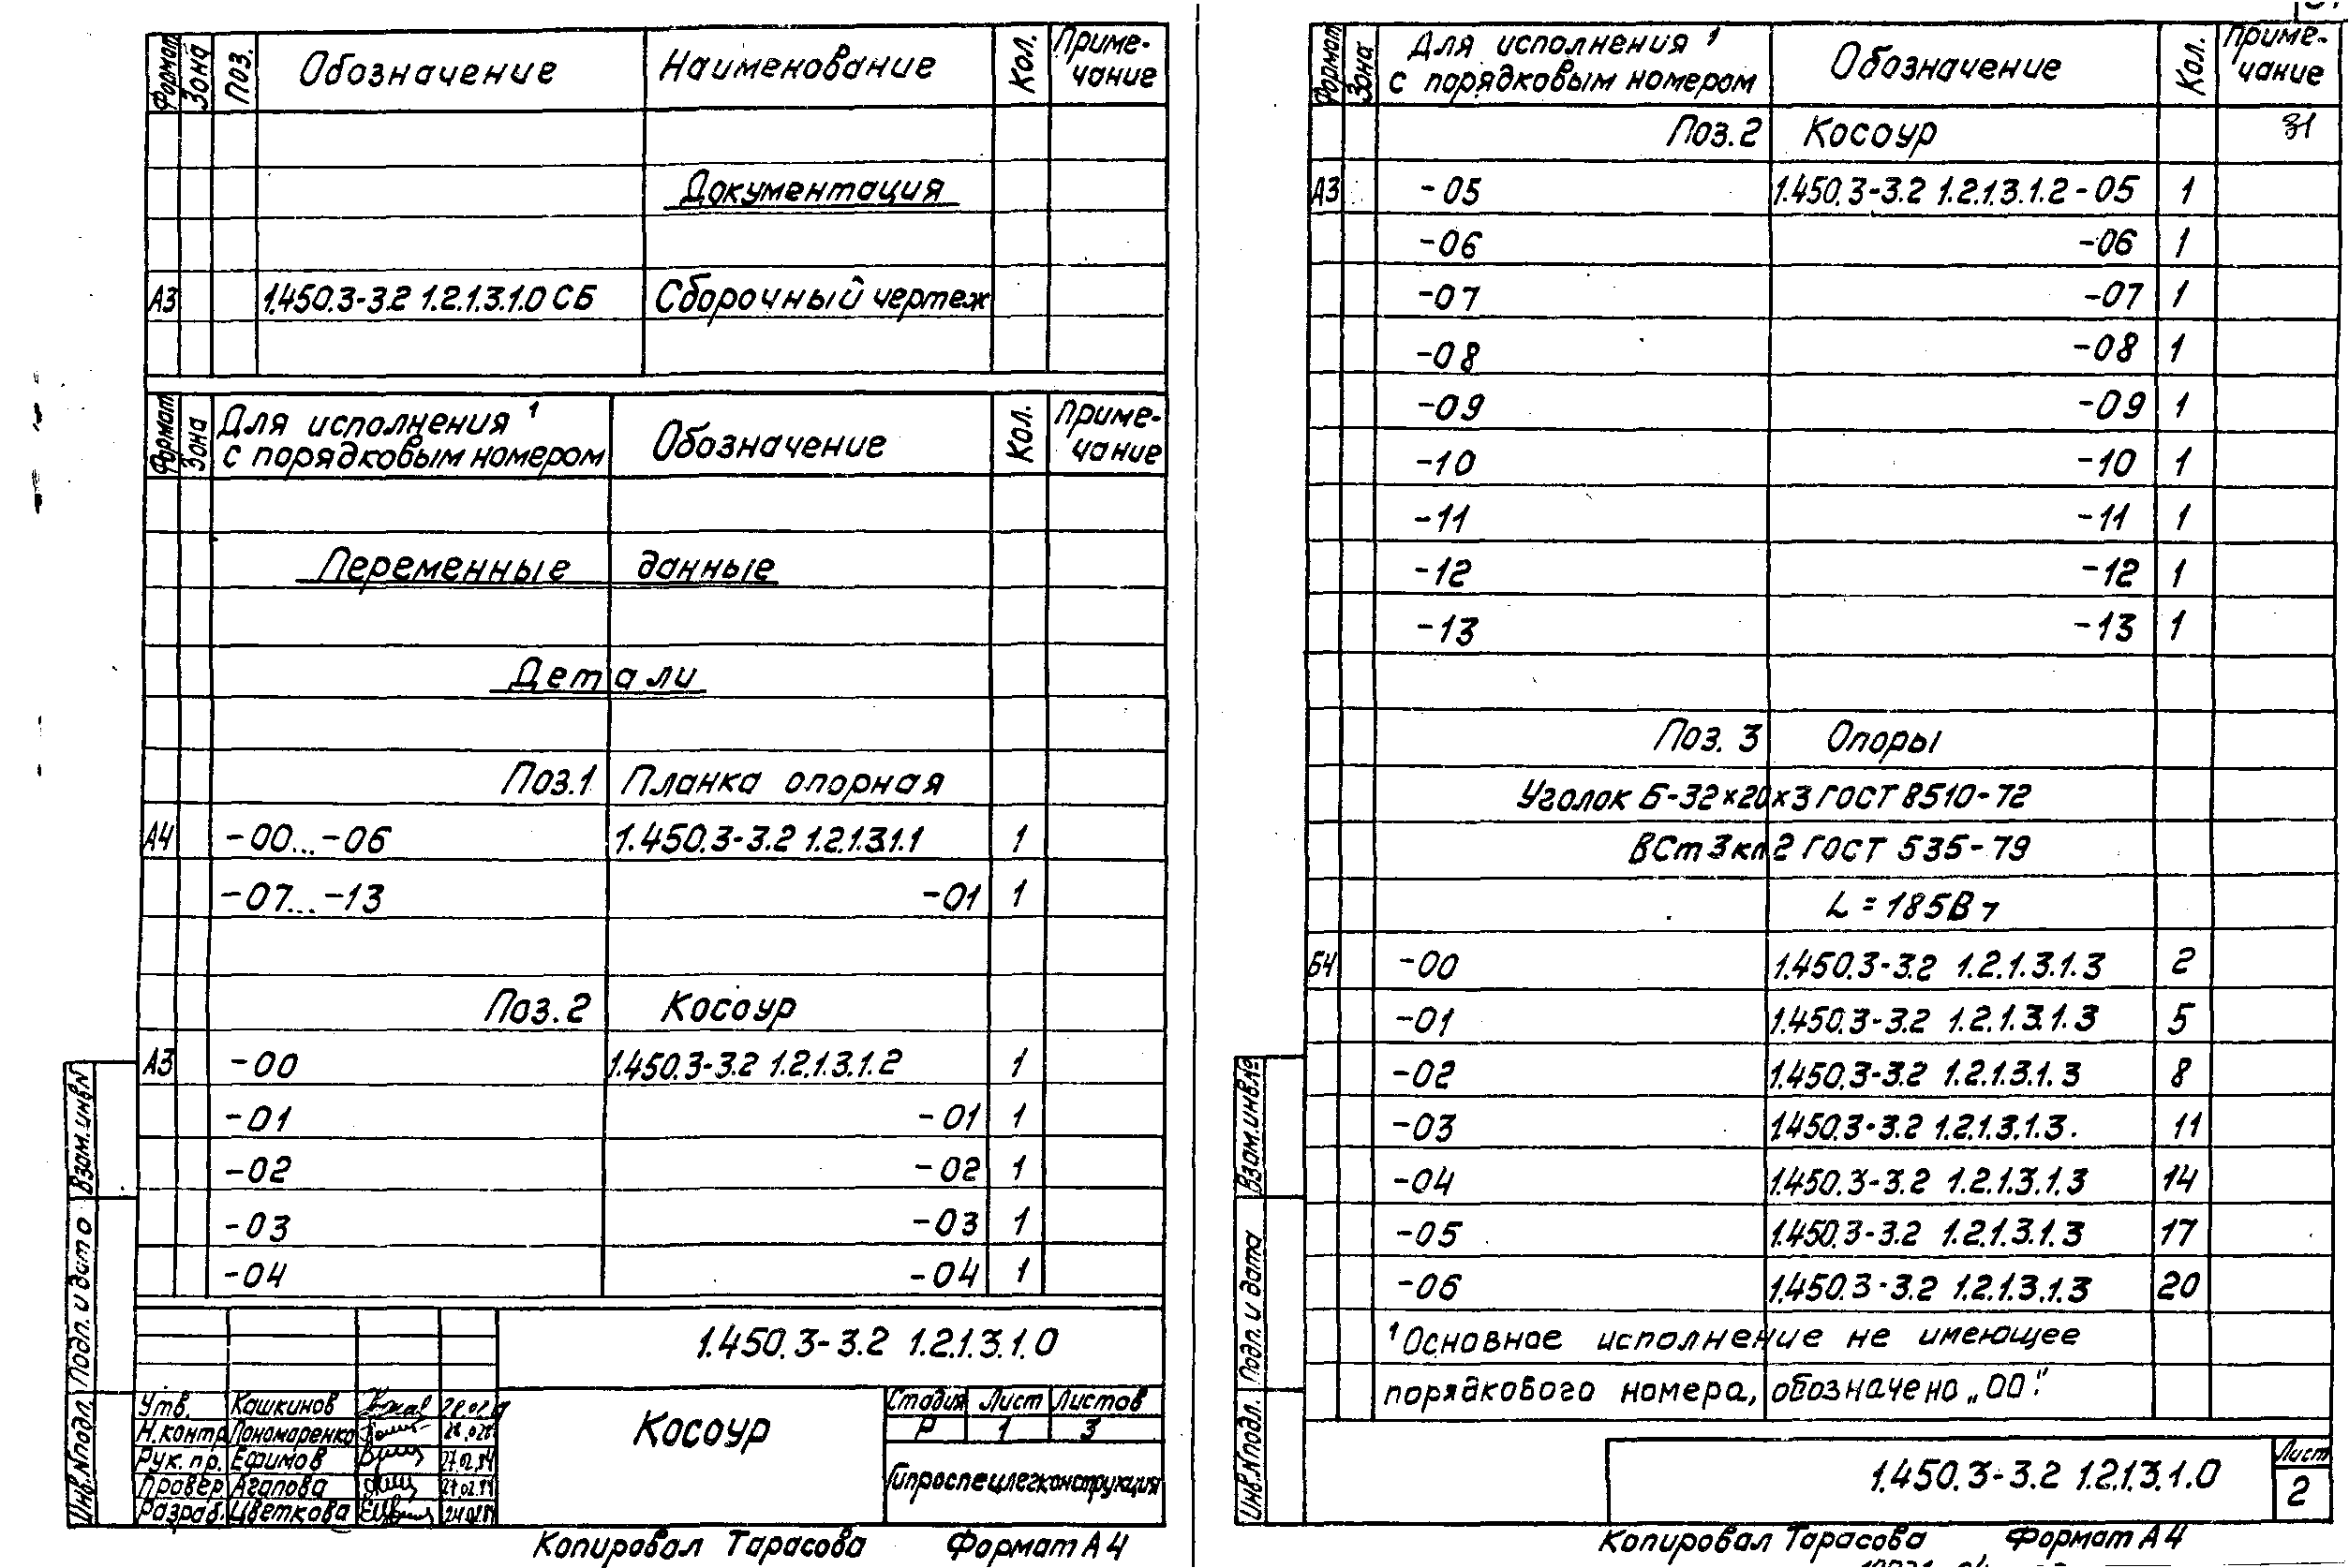 Формат Зона Поз. Обозначение Наименование Кол. Приме-
чание
Документация
А3 1.450.3-3.2 1.2.1.3.1.0 СБ Сборочный чертеж
Формат Зона Для исполнения ¹ Обозначение Кол. Приме-
с порядковым номером чание
Переменные данные
Детали
Поз.1 Планка опорная
А4 -00...-06 1.450.3-3.2 1.2.1.3.1.1 1
-07...-13 -01 1
Поз.2 Косоур
А3 -00 1.450.3-3.2 1.2.1.3.1.2 1
-01 -01 1
-02 -02 1
-03 -03 1
-04 -04 1
Взам.инв.N
Подп. и дата
Инв.N подл.
1.450.3-3.2 1.2.1.3.1.0
Утв. Кашкинов
Н.контр. Пономаренко
Рук. пр. Ефимов 27.02.84
Провер. Агапова 27.02.84
Разраб. Цветкова
Косоур
Стадия Лист Листов
Р 1 3
Гипроспецлегконструкция
Копировал Тарасова Формат А4
Формат Зона Для исполнения ¹ Обозначение Кол. Приме-
с порядковым номером чание
Поз.2 Косоур 31
А3 -05 1.450.3-3.2 1.2.1.3.1.2-05 1
-06 -06 1
-07 -07 1
-08 -08 1
-09 -09 1
-10 -10 1
-11 -11 1
-12 -12 1
-13 -13 1
Поз. 3 Опоры
Уголок Б-32×20×3 ГОСТ 8510-72
ВСт3кп2 ГОСТ 535-79
L = 185
Б4 -00 1.450.3-3.2 1.2.1.3.1.3 2
-01 1.450.3-3.2 1.2.1.3.1.3 5
-02 1.450.3-3.2 1.2.1.3.1.3 8
-03 1.450.3-3.2 1.2.1.3.1.3. 11
-04 1.450.3-3.2 1.2.1.3.1.3 14
-05 1.450.3-3.2 1.2.1.3.1.3 17
-06 1.450.3-3.2 1.2.1.3.1.3 20
¹ Основное исполнение не имеющее
порядкового номера, обозначено „00".
Взам.инв.№
Подп. и дата
Инв.N подл.
1.450.3-3.2 1.2.1.3.1.0
Лист
2
Копировал Тарасова Формат А4